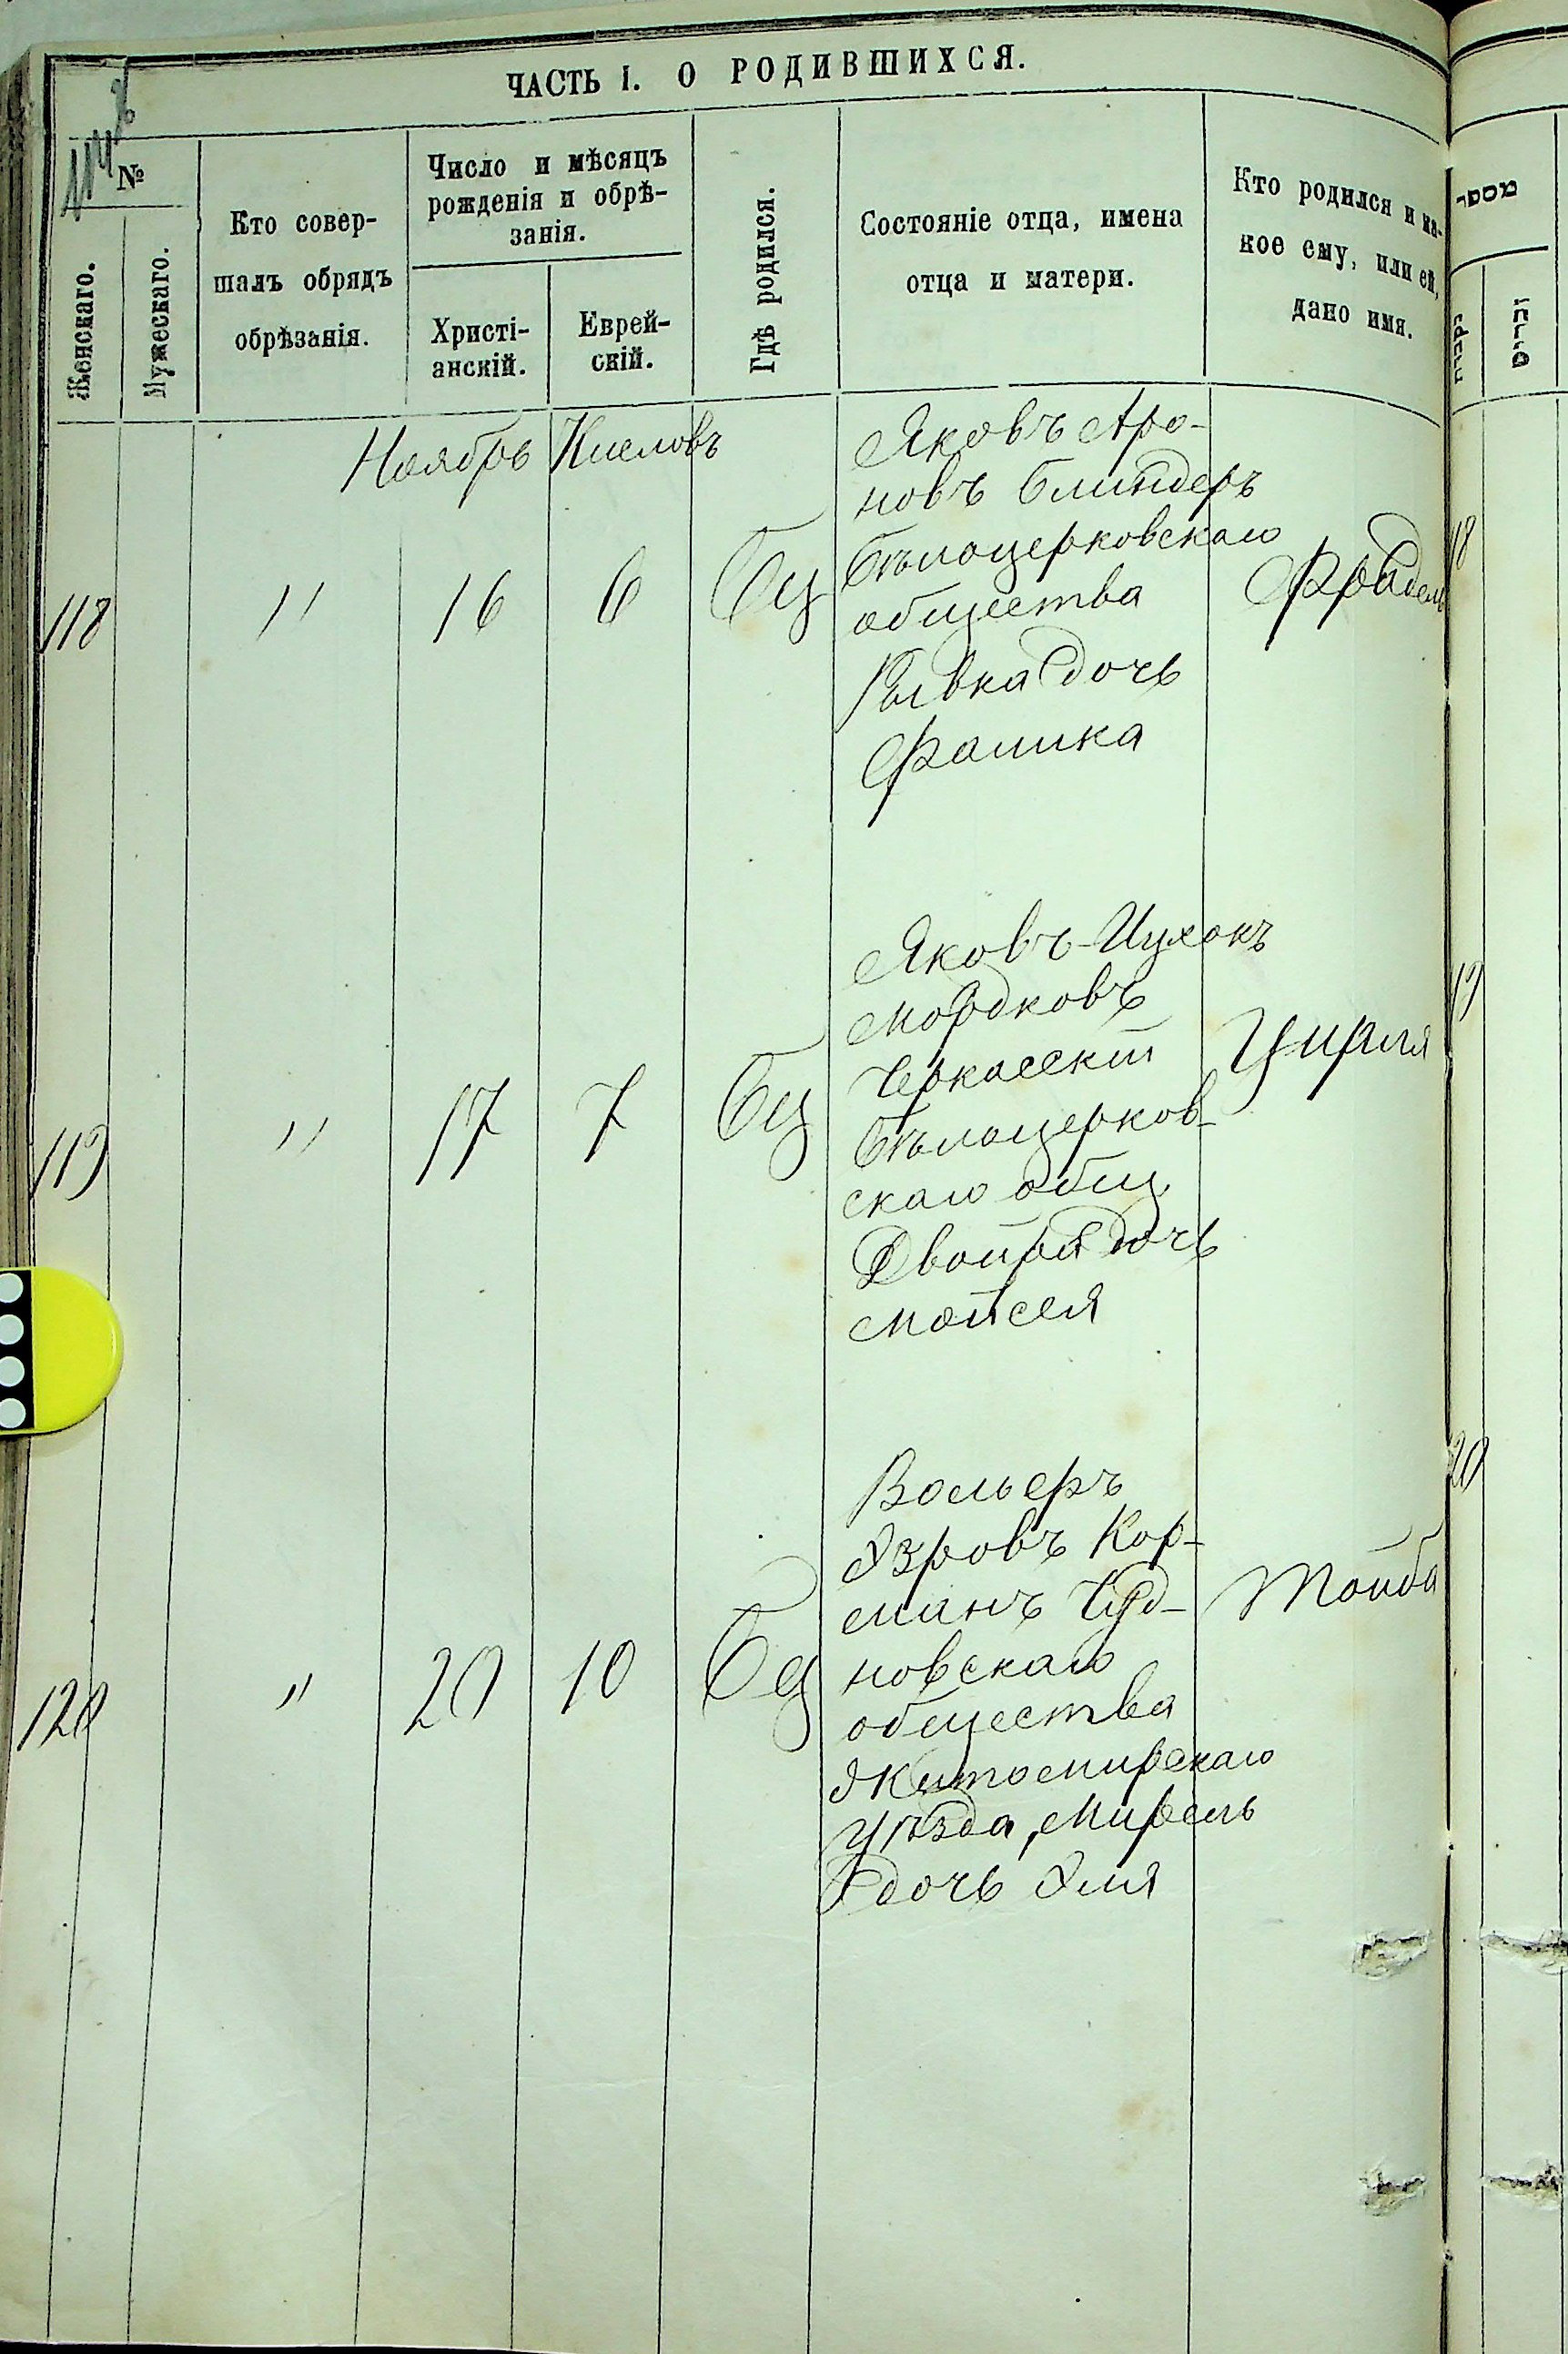 ЧАСТЬ I. О РОДИВШИХСЯ.
№
Женскаго.
Мужескаго.
Кто совер-
шалъ обрядъ
обрѣзанія.
Число и мѣсяцъ
рожденія и обрѣ-
занія.
Христі-
анскій.
Еврей-
скій.
Гдѣ родился.
Состояніе отца, имена
отца и матери.
Кто родился и ка-
кое ему, или ей,
дано имя.
Ноябрь Кислевъ
118 " 16 6 Бц
Яковъ Аро-
новъ Блиндеръ
Бѣлоцерковскаго
общества
Рывка дочь
Фалика
Фрадель
119 " 17 7 Бц
Яковъ-Ицхокъ
Мордковъ
Черкасскій
Бѣлоцерков-
скаго общ
Двойря дочь
Мойсея
Цирля
120 " 20 10 Бц
Вольеръ
Азровъ Кор-
манъ Чуд-
новскаго
общества
Житомирскаго
уѣзда, Мирель
дочь Эля
Тойба
מספר
נקבות
זכרים
18
19
20